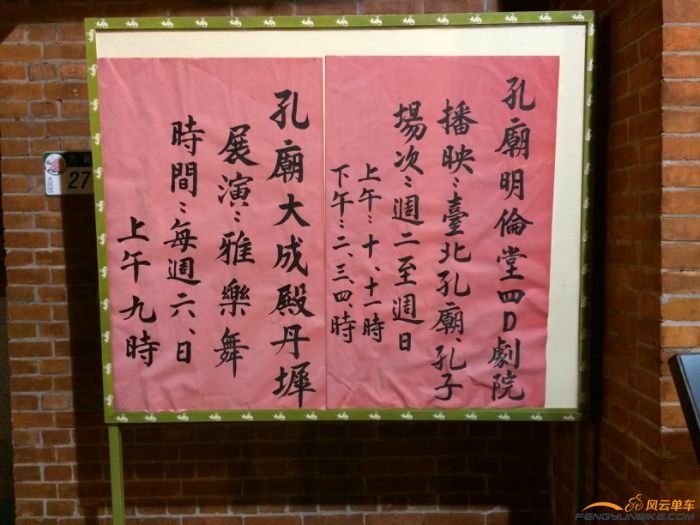 孔廟明倫堂四D劇院
播映：臺北孔廟、孔子
場次：週二至週日
上午：十、十一時
下午：二、三、四、時
孔廟大成殿丹墀
展演：雅樂舞
時間：每週六、日
上午九時
27
风云单车
FENGYUNBIKE.COM